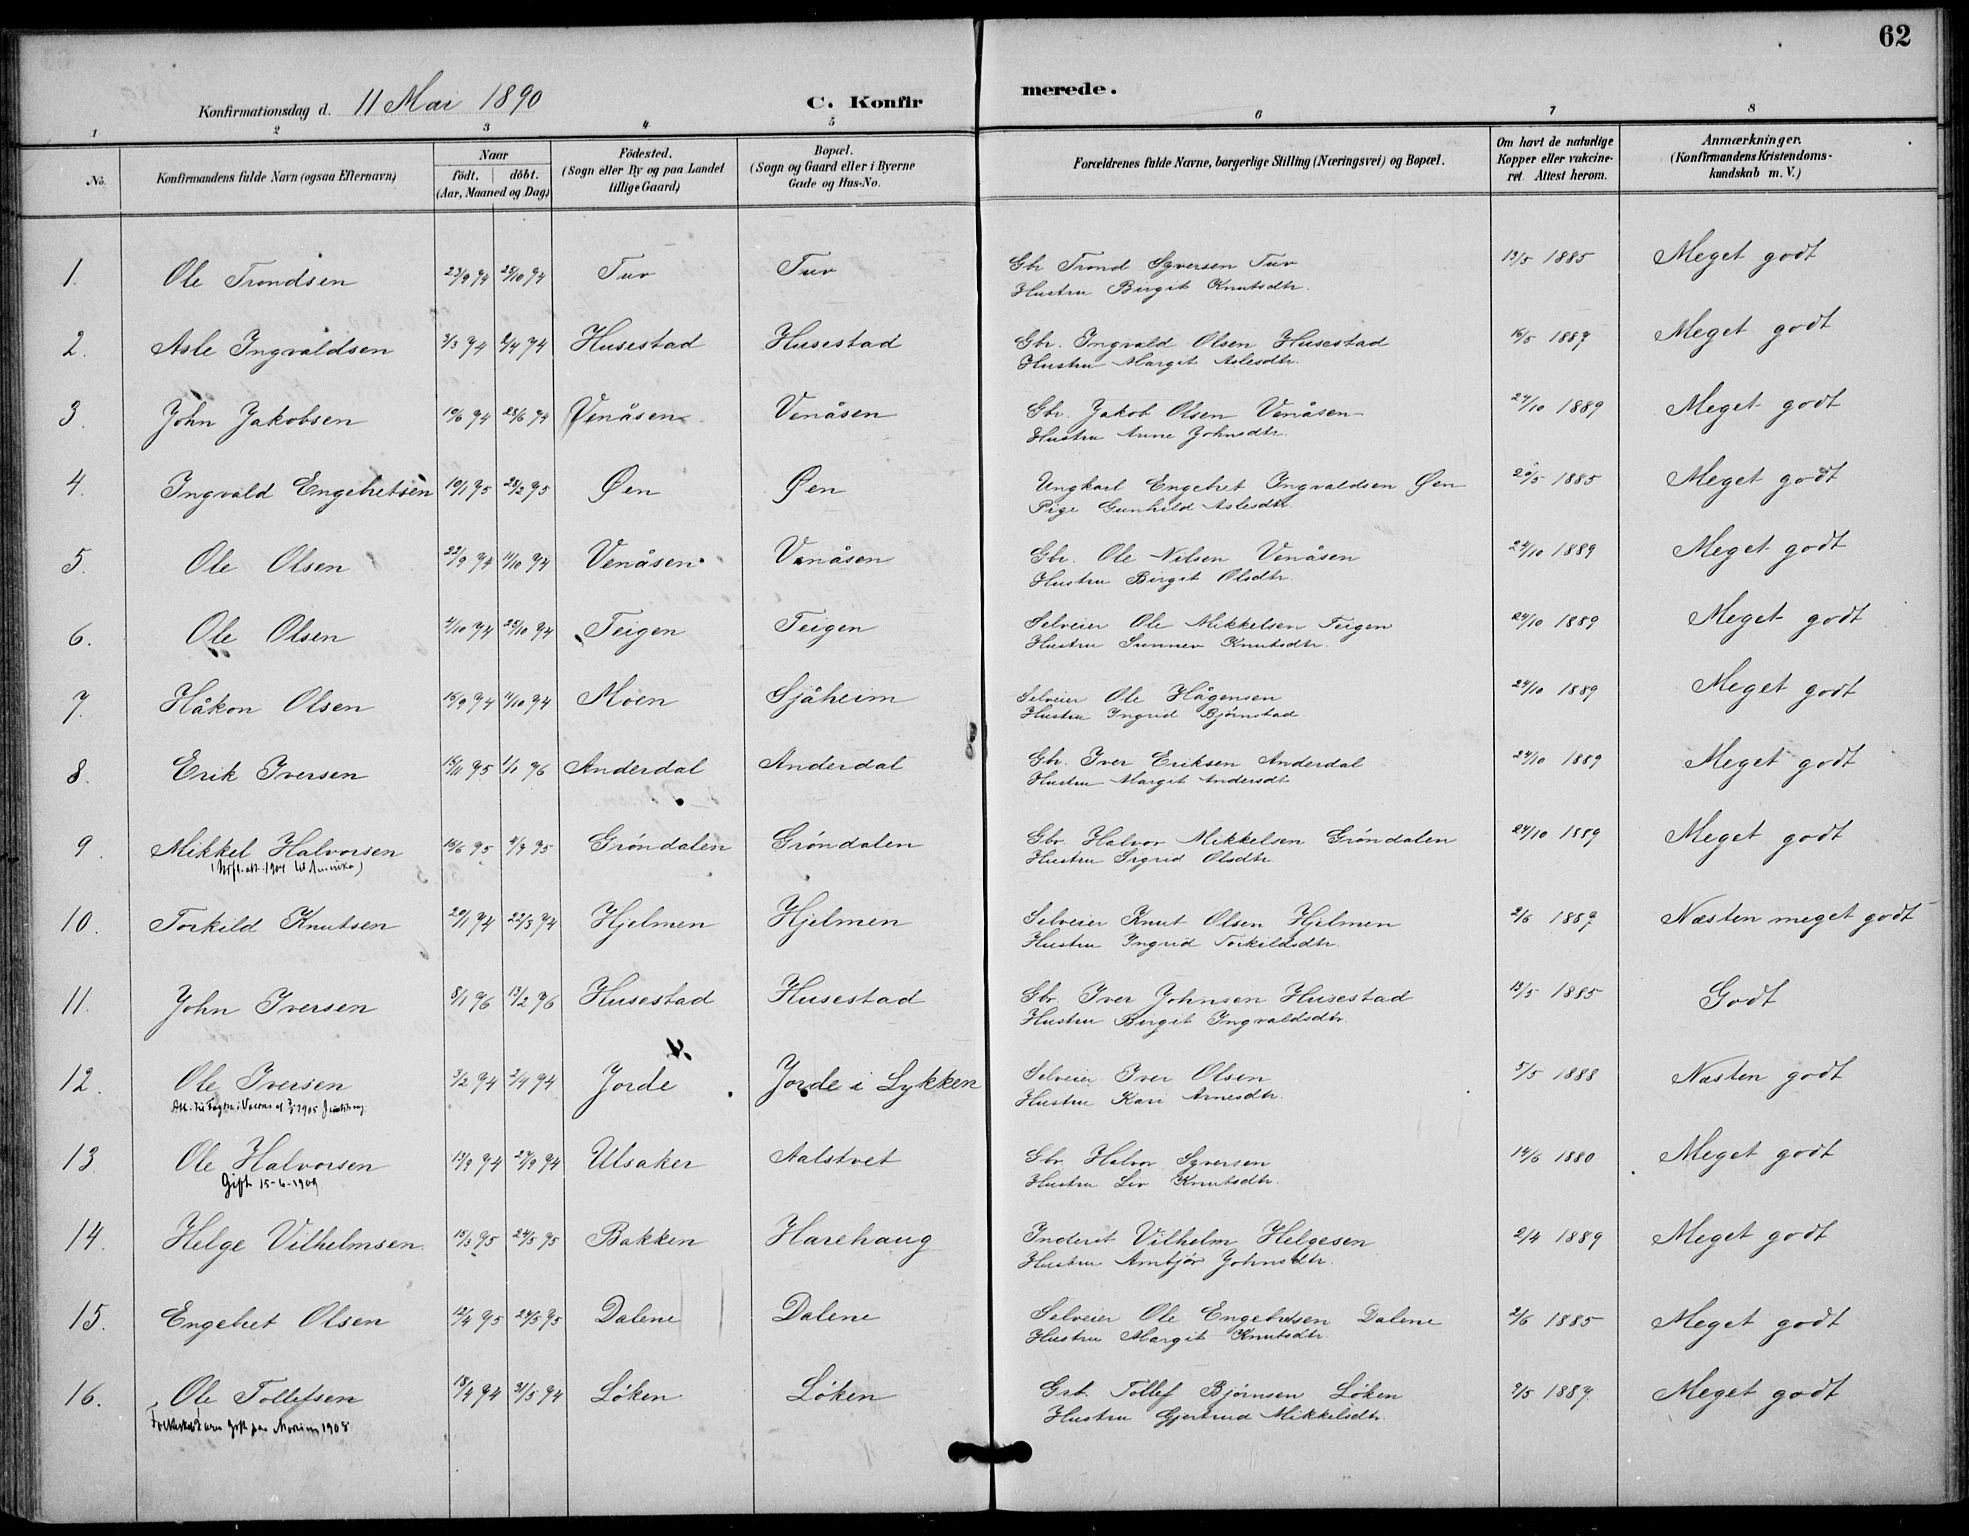 62
Konfirmationsdag d. 11 Mai 1890
C. Konfirmerede.
1 2 3 4 5 6 7 8
No.
Konfirmandens fulde Navn (ogsaa Efternavn)
Naar
födt. döbt.
(Aar, Maaned og Dag)
Födested.
(Sogn eller By og paa Landet
tillige Gaard)
Bopæl.
(Sogn og Gaard eller i Byerne
Gade og Hus-No.
Forældrenes fulde Navne, borgerlige Stilling (Næringsvei) og Bopæl.
Om havt de naturlige
Kopper eller vakcine-
ret. Attest herom.
Anmærkninger.
(Konfirmandens Kristendoms-
kundskab m. V.)
1. Ole Trondsen 23/9 74 25/10 74 Tuv Tuv Gbr Trond Syversen Tuv 19/5 1885 Meget godt
Hustru Birgit Knutsdtr.
2. Asle Ingvaldsen 3/3 74 2/4 74 Husestad Husestad Gbr. Ingvald Olsen Husestad 16/5 1887 Meget godt
Hustru Margit Aslesdtr.
3. John Jakobsen 10/6 74 28/6 74 Venåsen Venåsen Gbr. Jakob Olsen Venåsen 24/10 1889 Meget godt
Hustru Anne Johnsdtr.
4. Ingvald Engebretsen 10/1 75 28/2 75 Øen Øen Ungkarl Engebret Ingvaldsen Øen 20/5 1885 Meget godt
Pige Gunhild Aslesdtr.
5. Ole Olsen 22/9 74 11/10 74 Venåsen Venåsen Gbr. Ole Nilsen Venåsen 24/10 1889 Meget godt
Hustru Birgit Olsdtr.
6. Ole Olsen 2/10 74 25/10 74 Teigen Teigen Selveier Ole Mikkelsen Teigen 24/10 1889 Meget godt
Hustru Sunnev Knutsdtr.
7. Håkon Olsen 15/9 74 11/10 74 Moen Sjåheim Selveier Ole Hågensen 24/10 1889 Meget godt
Hustru Ingrid Bjørnstad
8. Erik Iversen 15/11 75 1/1 76 Anderdal Anderdal Gbr. Iver Eriksen Anderdal 24/10 1889 Meget godt
Hustru Margit Andersdtr
9. Mikkel Halvorsen 16/6 75 4/7 75 Grøndalen Grøndalen Gbr. Halvor Mikkelsen Grøndalen 24/10 1889 Meget godt
til Amerika) Hustru Sigrid Olsdtr.
10. Torkild Knutsen 20/1 74 22/3 74 Hjelmen Hjelmen Selveier Knut Olsen Hjelmen 2/6 1887 Næsten meget godt
Hustru Ingrid Torkildsdtr.
11. John Iversen 8/1 76 13/2 76 Husestad Husestad Gbr. Iver Johnsen Husestad 13/5 1885 Godt
Hustru Birgit Ingvaldsdtr.
12. Ole Iversen 3/2 74 2/4 74 Jorde Jorde i Lykken Selveier Iver Olsen 5/5 1888 Næsten godt
1905 Hustru Kari Arnesdtr.
13 Ole Halvorsen 13/9 74 27/9 74 Ulsaker Aalstvet Gbr. Halvor Syversen 14/6 1880 Meget godt
Gift 15-6-1909 Hustru Liv Knutsdtr.
14. Helge Vilhelmsen 15/3 75 24/5 75 Bakken Harehaug Inderst Vilhelm Helgesen 2/4 1889 Meget godt
Hustru Arnbjør Johnsdtr.
15. Engebret Olsen 12/4 75 24/5 75 Dalene Dalene Selveier Ole Engebretsen Dalene 2/6 1885 Meget godt
Hustru Margit Knutsdtr.
16. Ole Tollefsen 18/4 74 31/5 74 Løken Løken Grb. Tollef Bjørnsen Løken 9/5 1887 Meget godt
1908 Hustru Gjertrud Mikkelsdtr.